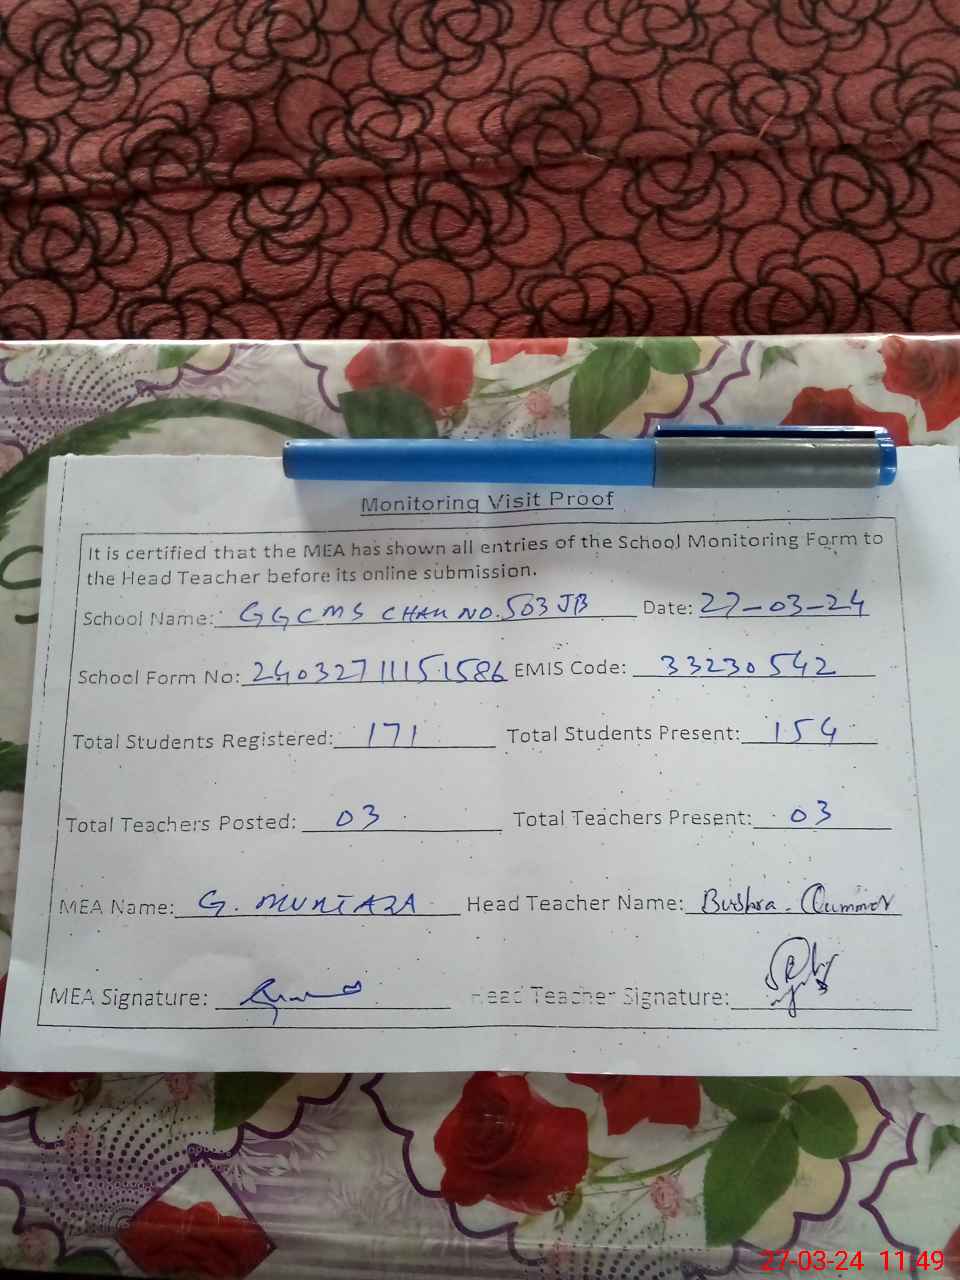 Monitoring Visit Proof
It is certified that the MEA has shown all entries of the School Monitoring Form to
the Head Teacher before its online submission.
School Name: GGCMS CHAK NO. 503 JB Date: 27-03-24
School Form No: 24032711151586 EMIS Code: 33230542
Total Students Registered: 171 Total Students Present: 154
Total Teachers Posted: 03 Total Teachers Present: 03
MEA Name: G. MURTAZA Head Teacher Name: Bushra. Qummer
MEA Signature: Head Teacher Signature:
27-03-24 11:49